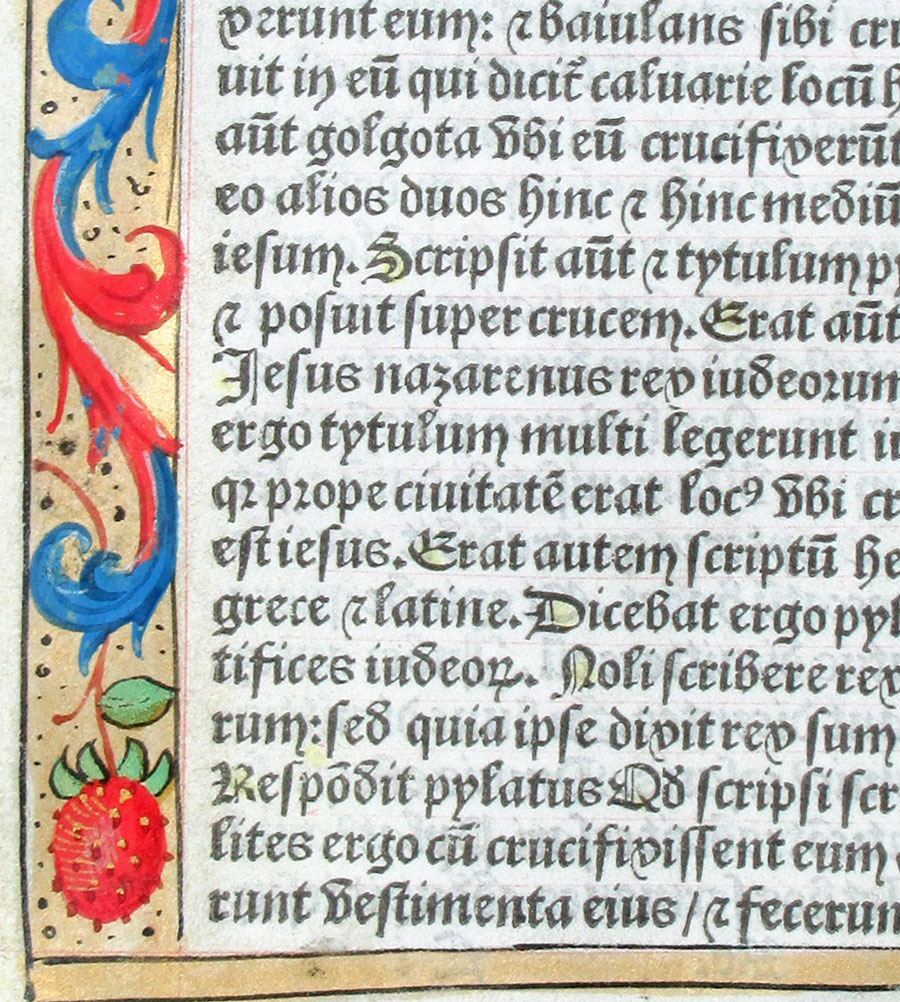 xerunt eum: ⁊ baiulans sibi cru
uit in eū qui dicit̄ caluarie locū h
aūt golgota vbi eū crucifixerūt
eo alios duos hinc ⁊ hinc mediū
iesum. Scripsit aūt ⁊ tytulum py
⁊ posuit super crucem. Erat aūt
Jesus nazarenus rex iudeorum
ergo tytulum multi legerunt iu
qꝛ prope ciuitatē erat locꝰ vbi cr
est iesus. Erat autem scriptū he
grece ⁊ latine. Dicebat ergo pyl
tifices iudeoꝝ. Noli scribere rex
rum: sed quia ipse dixit rex sum
Respōdit pylatus Qd scripsi scr
lites ergo cū crucifixissent eum
runt vestimenta eius / ⁊ fecerun